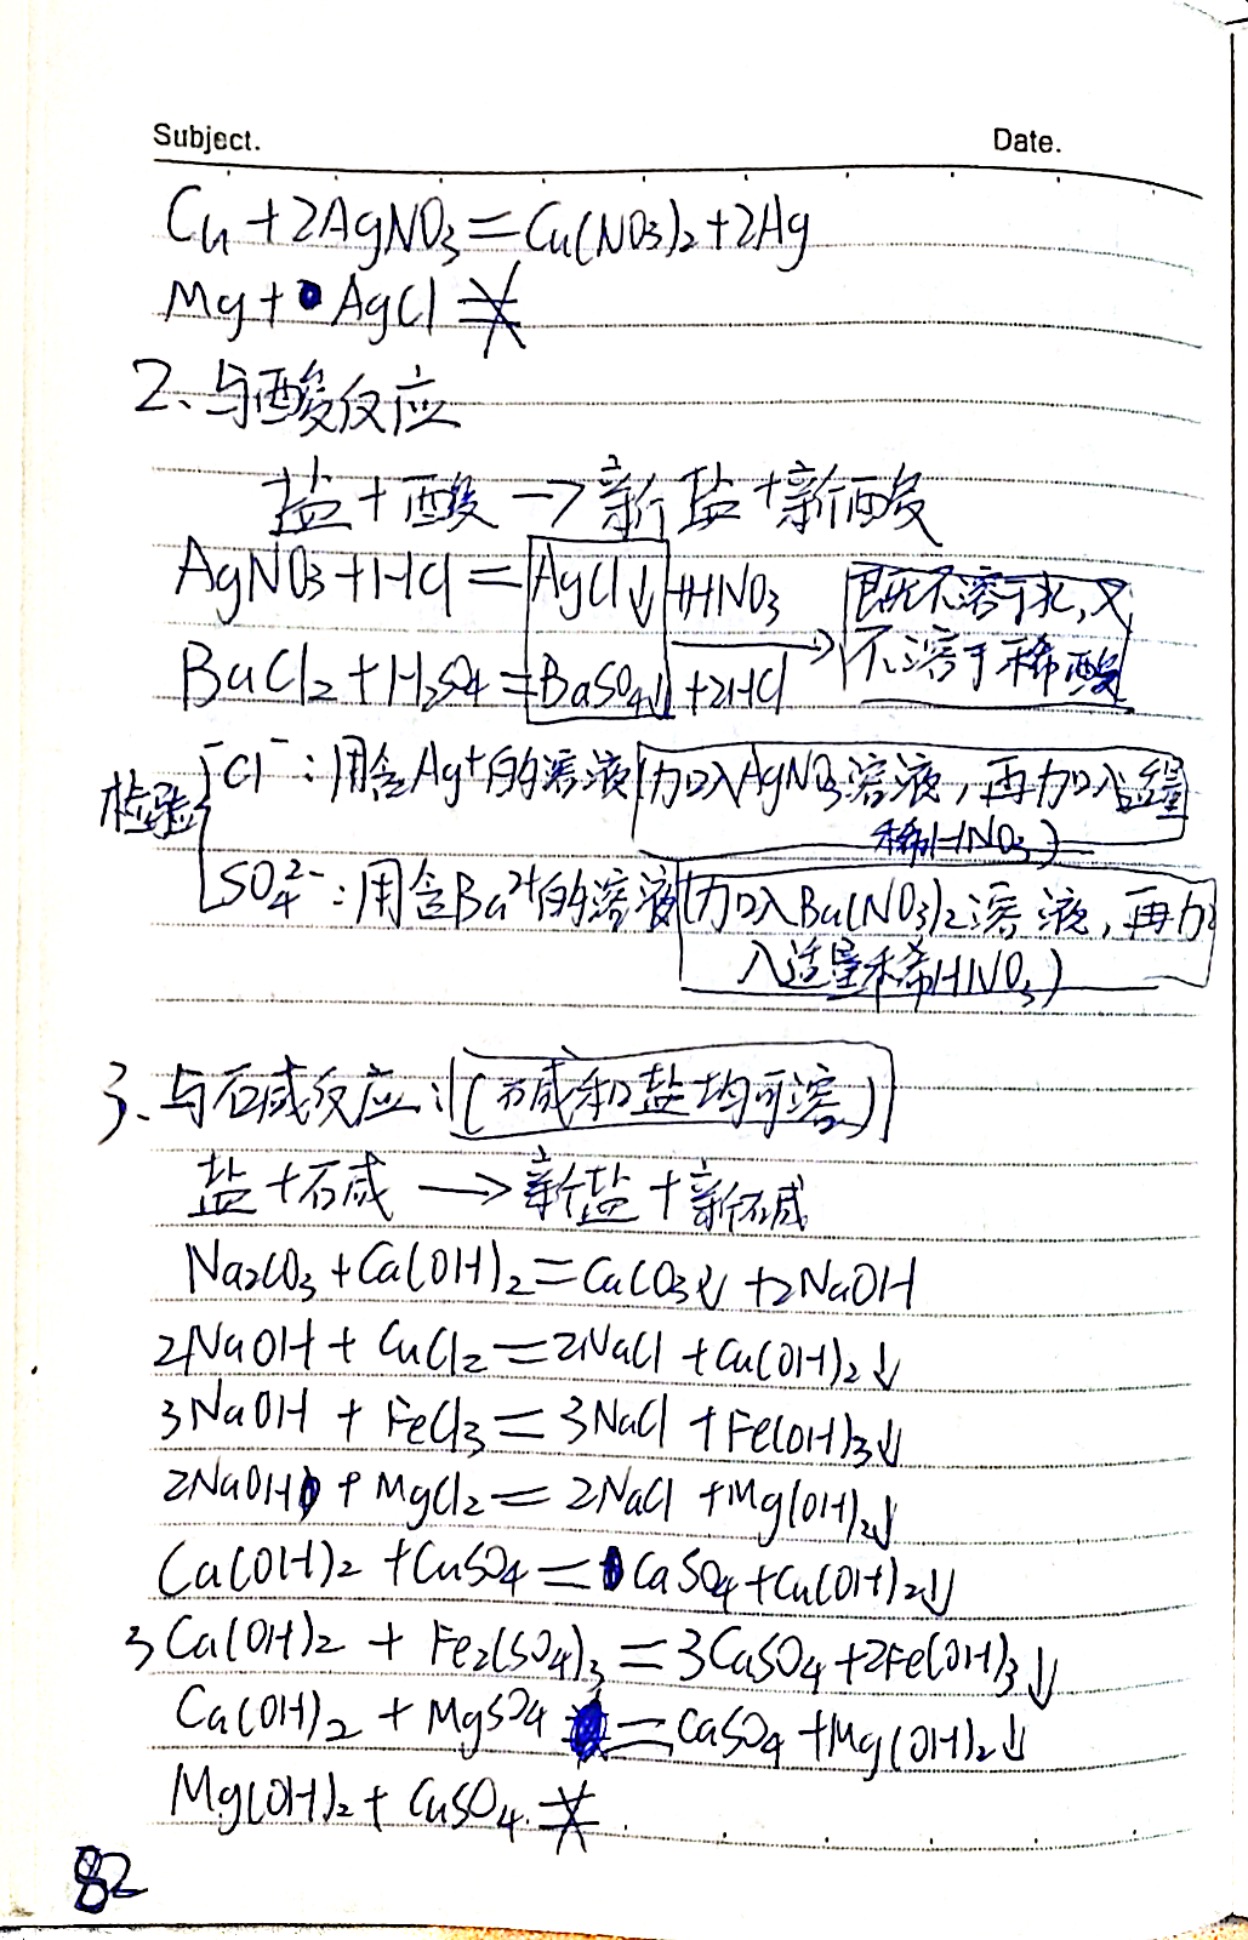 Subject. Date.
Cu+2AgNO₃=Cu(NO₃)₂+2Ag
Mg+AgCl≠
2、与酸反应
盐+酸→新盐+新酸
AgNO₃+HCl=AgCl↓+HNO₃ 即不溶于水,又
BaCl₂+H₂SO₄=BaSO₄↓+2HCl → 不溶于稀酸
检验
Cl⁻:用含Ag⁺的溶液(加入AgNO₃溶液,再加入适量
稀HNO₃)
SO₄²⁻:用含Ba²⁺的溶液(加入Ba(NO₃)₂溶液,再加
入适量稀HNO₃)
3、与碱反应:(碱和盐均可溶)
盐+碱→新盐+新碱
Na₂CO₃+Ca(OH)₂=CaCO₃↓+2NaOH
2NaOH+CuCl₂=2NaCl+Cu(OH)₂↓
3NaOH+FeCl₃=3NaCl+Fe(OH)₃↓
2NaOH+MgCl₂=2NaCl+Mg(OH)₂↓
Ca(OH)₂+CuSO₄=CaSO₄+Cu(OH)₂↓
3Ca(OH)₂+Fe₂(SO₄)₃=3CaSO₄+2Fe(OH)₃↓
Ca(OH)₂+MgSO₄=CaSO₄+Mg(OH)₂↓
Mg(OH)₂+CuSO₄≠
82